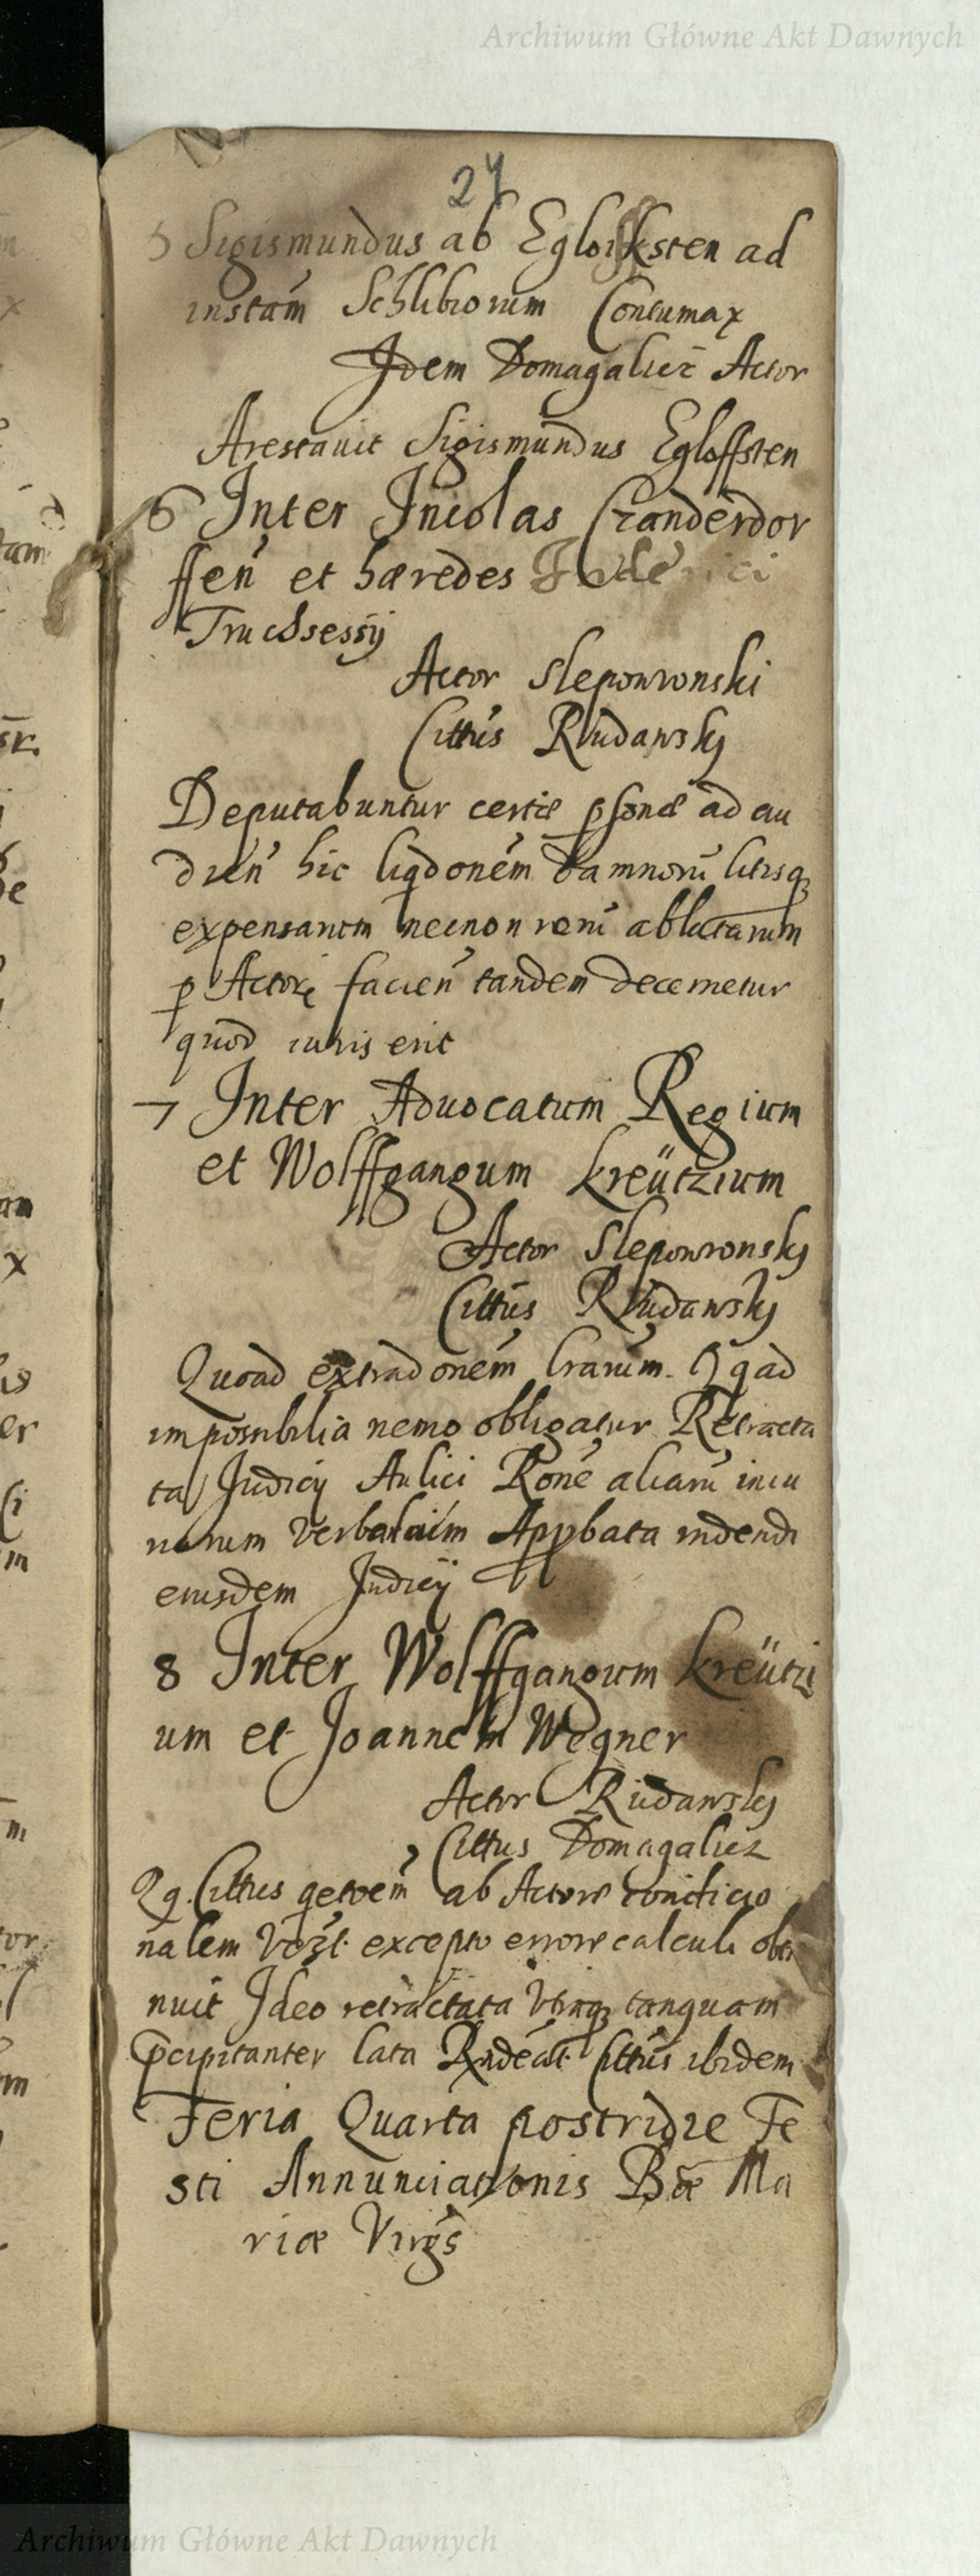 Archiwum Główne Akt Dawnych
24
5 Sigismundus ab Egloffsten ad
instam Schlibiorum Contumax
Idem Domagalicz Actor
Arestauit Sigismundus Egloffsten
6 Inter Incolas Czanderdor
ffen et hæredes Friderici
Truchsessij
Actor Sleponronski
Cittus Rudawsky
Deputabuntur certæ psonæ ad au
dien hic liqdonem damnoru litisq
expensarum necnon reru ablatarum
p Actore facien tandem decernetur
quod iuris erit
7 Inter Aduocatum Regium
et Wolffgangum Kreützium
Actor Slepowronsky
Cittus Rudawsky
Quoad extradonem lrarum. Q q ad
impossibilia nemo obligatur Retracta
ta Judicij Aulici Rone aliaru
Appbata
eiusdem Judicij
8 Inter Wolffgangum Kreützi
um et Joannem Wegner
Actor Rudawsky
Cittus Domagalicz
Qq. Cittus ab Actore conditio
nalem excepto errore calculi obti
nuit Ideo retractata utraq tanquam
pcipitanter lata Cittus ibidem
Feria Quarta postridie Fe
sti Annunciationis Bæ Ma
riæ Virgs
Archiwum Główne Akt Dawnych